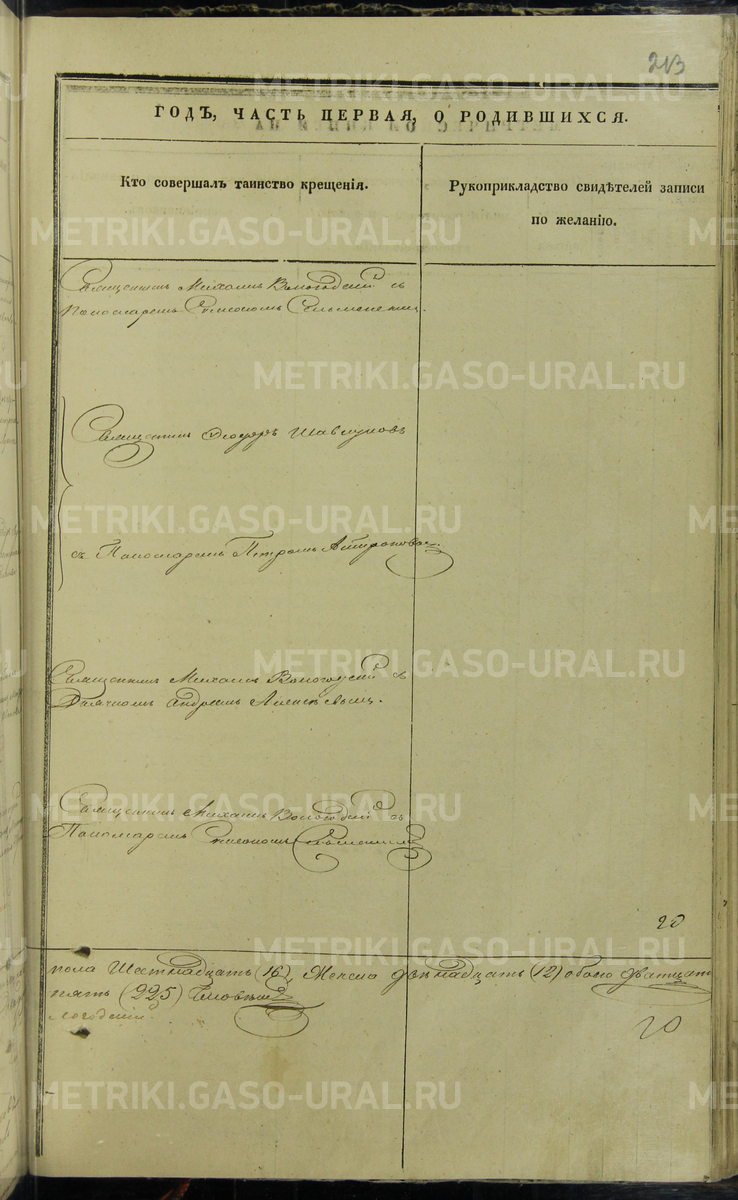 213
ГОДЪ, ЧАСТЬ ПЕРВАЯ, О РОДИВШИХСЯ.
Кто совершалъ таинство крещенія.
Рукоприкладство свидѣтелей записи
по желанію.
Священникъ Михаилъ Вологодскій съ
Пономаремъ
Священникъ Ѳеодоръ Шавкуновъ
съ Пономаремъ Петромъ
Священникъ Михаилъ Вологодскій съ
Дьячкомъ Андреемъ
Священникъ Михаилъ Вологодскій съ
Пономаремъ
20
пола Шестнадцать (16), Женска двѣнадцать (12) обоего
пять (225) Человѣкъ
20
METRIKI.GASO-URAL.RU